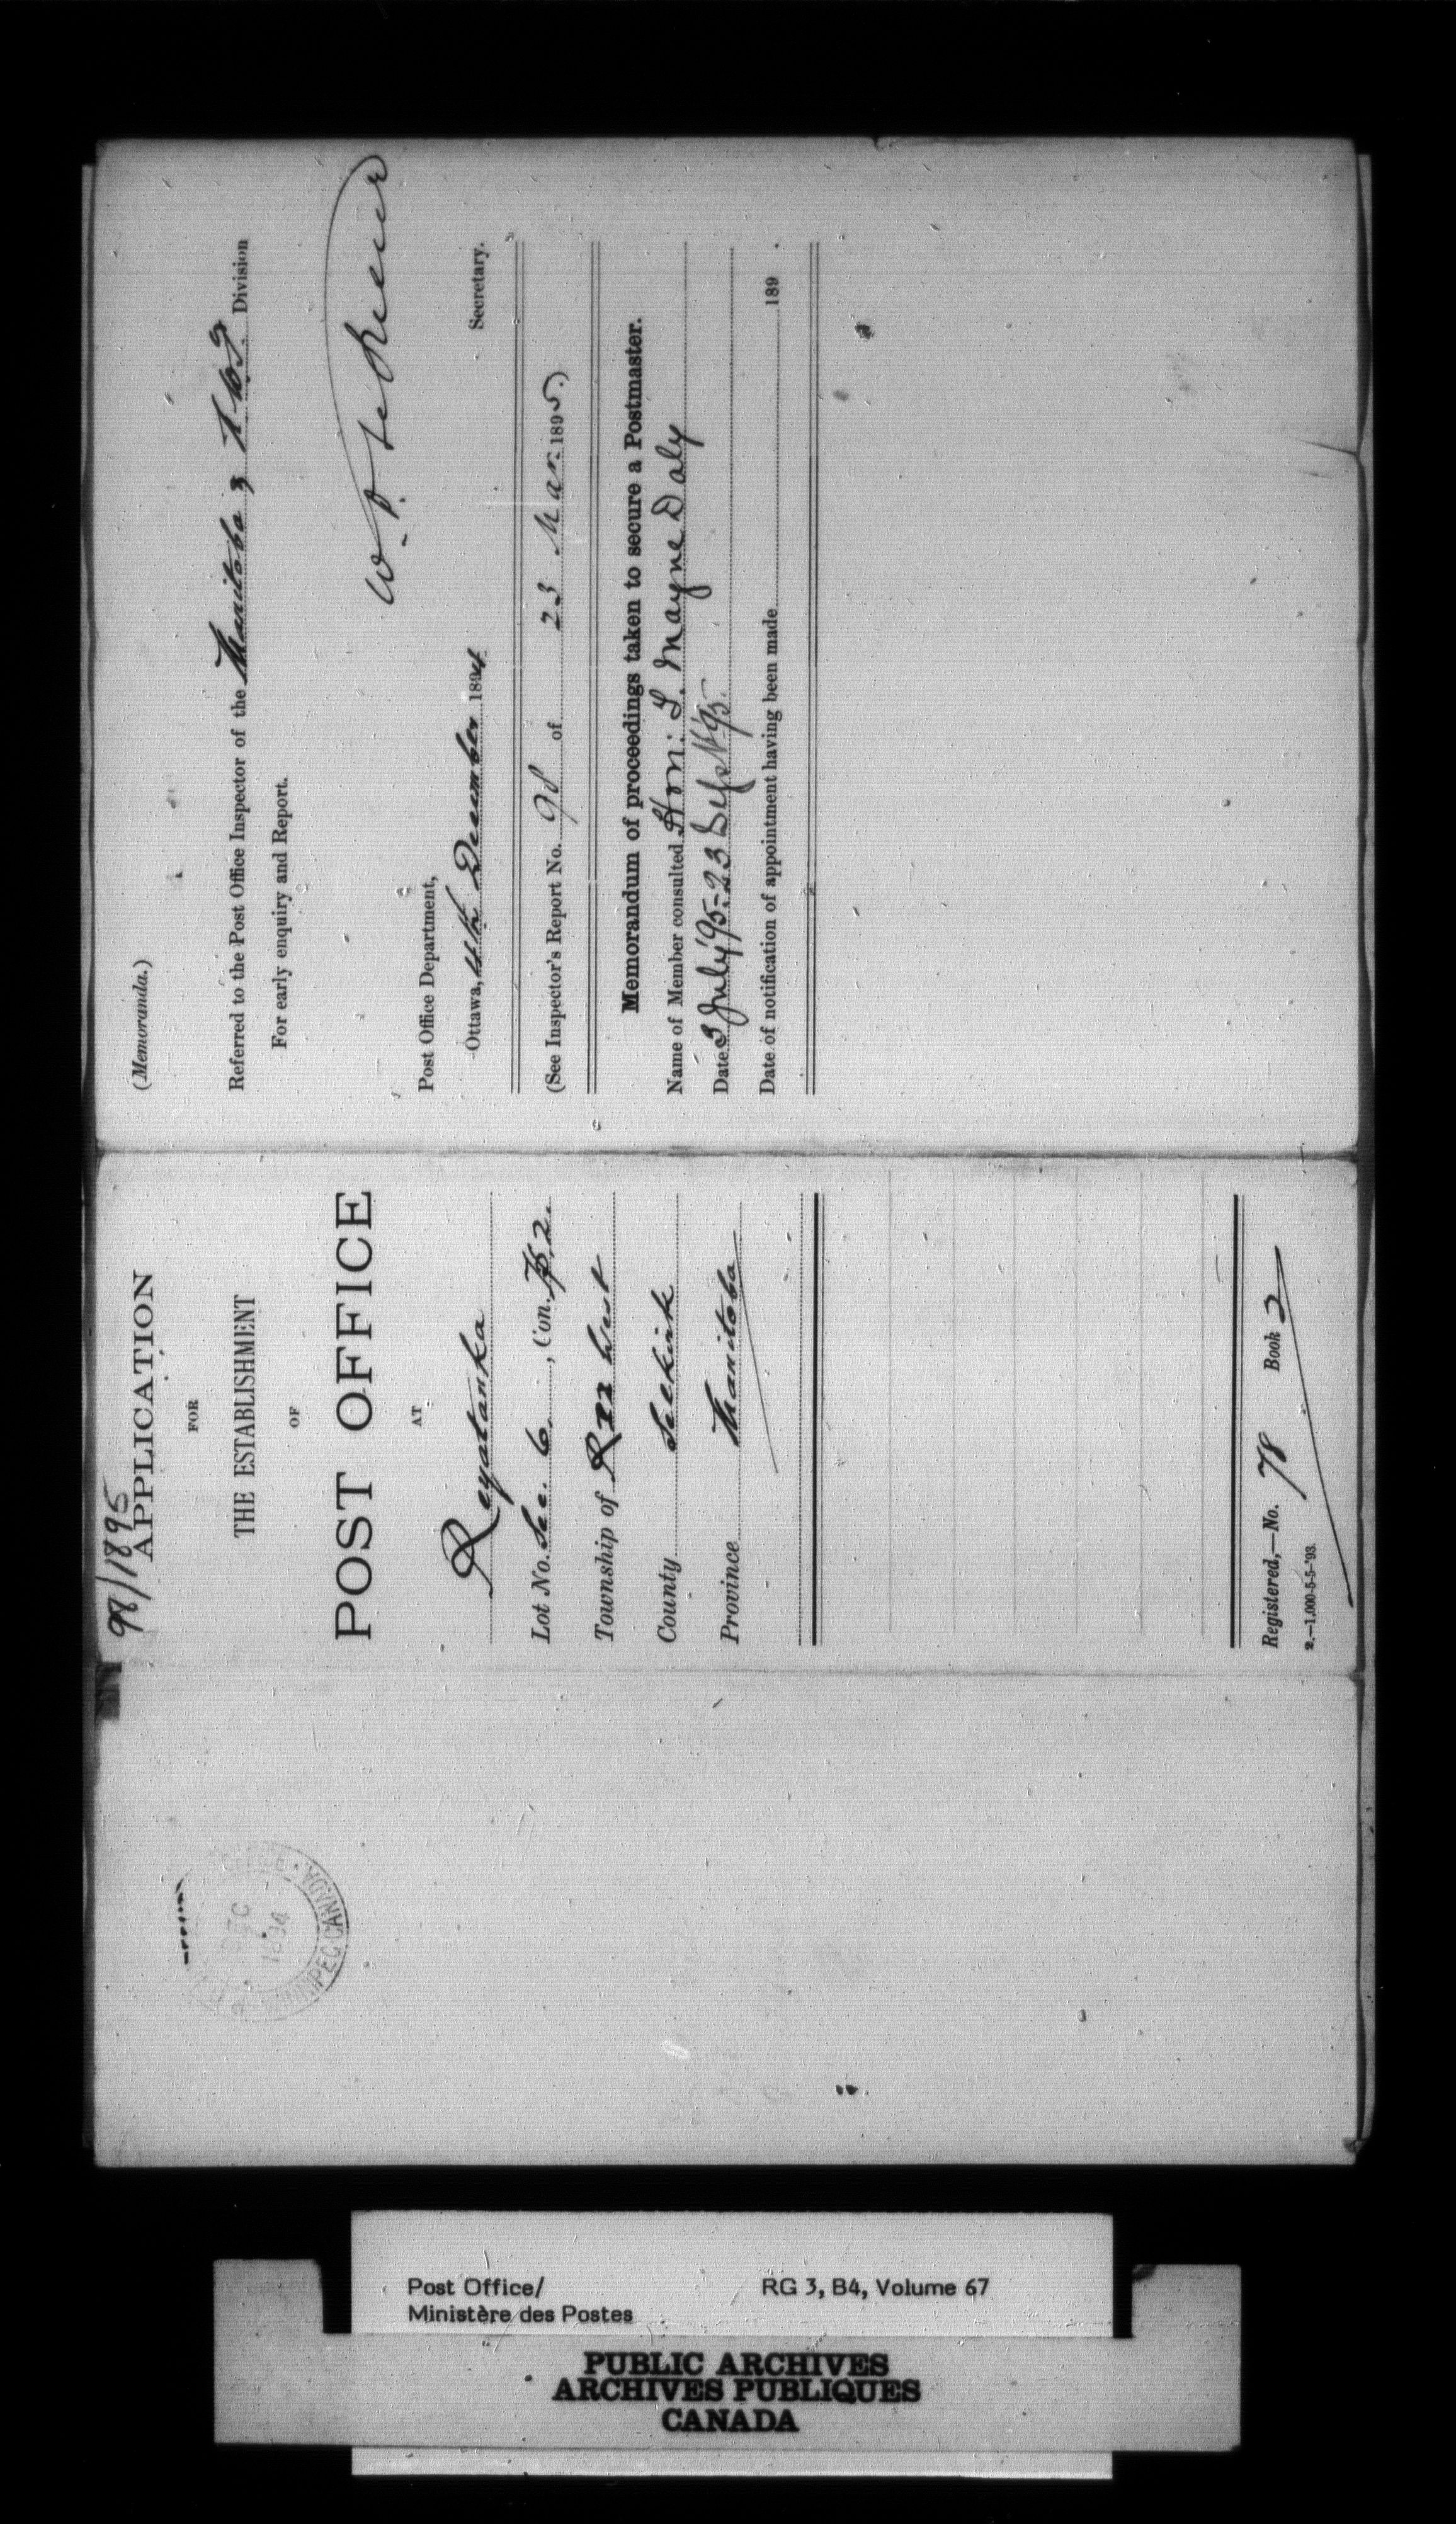 98/1895
APPLICATION
FOR
THE ESTABLISHMENT
OF
POST OFFICE
AT
Reyatanka
Lot No. Sec. 6, Con. Tp. 2.
Township of R XX West
County Selkirk
Province Manitoba
Registered,—No. 78 Book 2
2.—1,000-5-5-'93.
(Memoranda.)
Referred to the Post Office Inspector of the Manitoba & N.W.T. Division
For early enquiry and Report.
Secretary.
Post Office Department,
Ottawa, 4th December 1894
(See Inspector's Report No. 98 of 23 Mar. 1895.)
Memorandum of proceedings taken to secure a Postmaster.
Name of Member consulted Hon: T. Mayne Daly
Date 3 July '95-23 Sept '95.
Date of notification of appointment having been made 189
DEC
1894
WINNIPEG CANADA
Post Office/
Ministère des Postes
RG 3, B4, Volume 67
PUBLIC ARCHIVES
ARCHIVES PUBLIQUES
CANADA